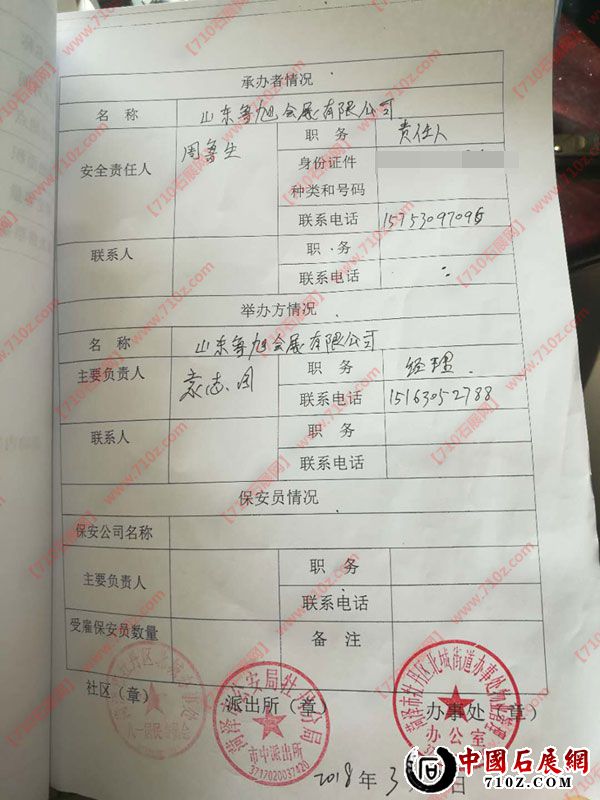 承办者情况
名 称 山东鲁旭会展有限公司
安全责任人 周鲁生 职 务 责任人
身份证件
种类和号码
联系电话 15753097096
联系人 职 务
联系电话
举办方情况
名 称 山东鲁旭会展有限公司
主要负责人 袁志同 职 务 经理
联系电话 15163052788
联系人 职 务
联系电话
保安员情况
保安公司名称
主要负责人 职 务
联系电话
受雇保安员数量 备 注
社区（章） 派出所（章） 办事处（章）
市中派出所
3717020037420
办公室
2018年3月 日
【710石展网】 www.710z.com
中國石展網
710Z.COM